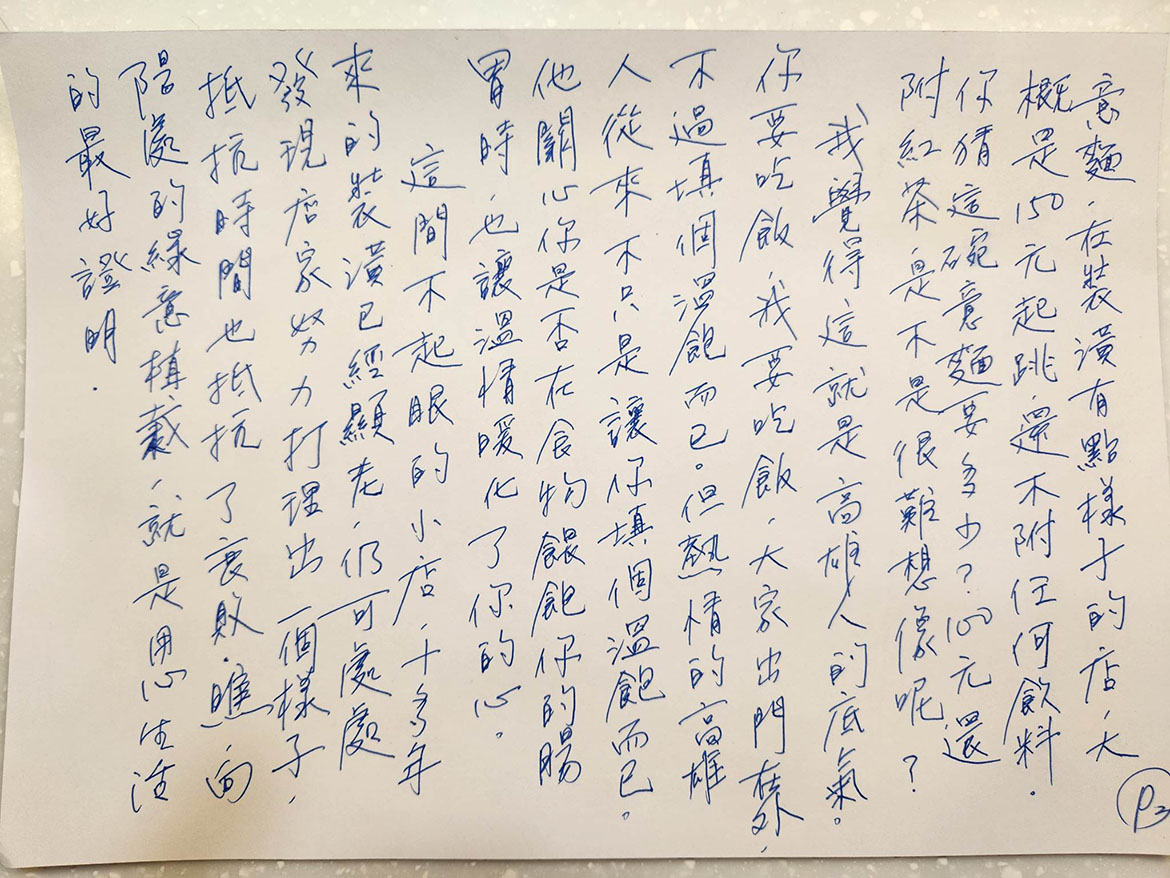 意麵，在裝潢有點樣子的店，大
概是150元起跳，還不附任何飲料．
你猜這碗意麵要多少？100元還
附紅茶，是不是很難想像呢？
我覺得這就是高雄人的底氣。
你要吃飯，我要吃飯，大家出門在外，
不過填個溫飽而已。但熱情的高雄
人從來不只是讓你填個溫飽而已。
他關心你是否在食物餵飽你的腸
胃時，也讓溫情暖化了你的心。
這間不起眼的小店，十多年
來的裝潢已經顯老，仍可處處
發現店家努力打理出一個樣子，
抵抗時間也抵抗了衰敗．瞧，向
陽處的綠意植栽，就是用心生活
的最好證明．
P3